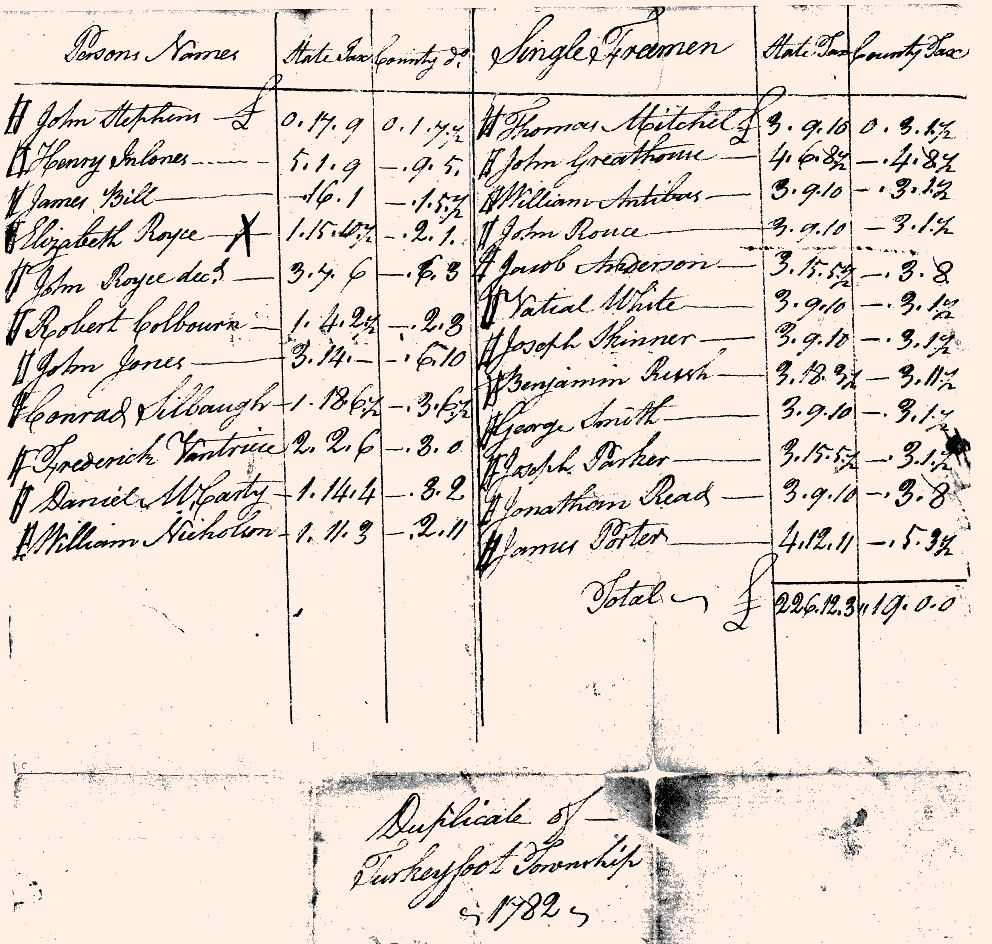 Persons Names State Tax County do. Single Freemen State Tax County Tax
John Stephens £ 0.17.9 0.1.7½ Thomas Mitchel £ 3.9.10 0.3.1½
Henry Inlones 5.1.9 —.9.5. John Greathouse 4.6.8½ —.4.8½
James Bill —.16.1 —.1.5½ William Antibus 3.9.10 —.3.1½
Elizabeth Royce X 1.15. —.2.1. John Rouce 3.9.10 —.3.1½
John Royce decd. 3.7.6 —.6.3 Jacob Anderson 3.15.5½ —.3.8
Robert Colbourn 1.4.2½ —.2.3 Vatial White 3.9.10 —.3.1½
John Jones 3.14.— —.6.10 Joseph Skinner 3.9.10 —.3.1½
Conrad Silbaugh 1.18.6½ —.3.6½ Benjamin Rush 3.18.3½ —3.11½
Frederick Vantrice 2.2.6 —.3.0 George Smith 3.9.10 —.3.1½
Daniel McCarty 1.14.4 —.3.2 Joseph Parker 3.15.5½ —.3.1½
William Nicholson 1.11.3 —.2.11 Jonathan Read 3.9.10 —.3.8
James Porter 4.12.11 —.5.3½
Total £ 226.12.3 19.0.0
Duplicate of —
Turkeyfoot Township
1782